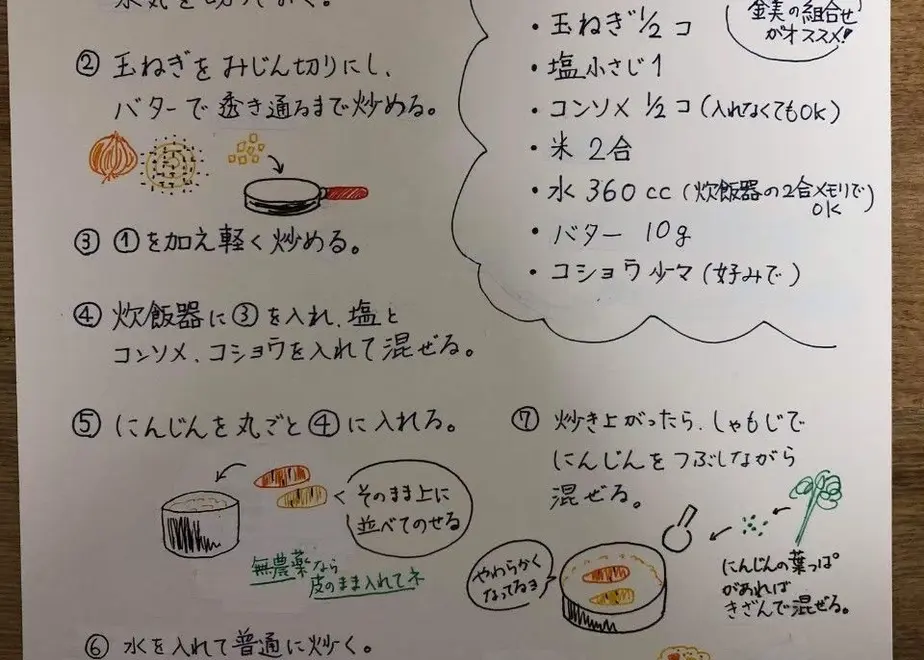 水気を切っておく。
② 玉ねぎをみじん切りにし、
バターで透き通るまで炒める。
③ ①を加え軽く炒める。
④ 炊飯器に③を入れ、塩と
コンソメ、コショウを入れて混ぜる。
⑤ にんじんを丸ごと④に入れる。
そのまま上に
並べてのせる
無農薬なら
皮のまま入れてネ
⑥ 水を入れて普通に炊く。
の組合せ
がオススメ!
・玉ねぎ 1/2 コ
・塩 小さじ1
・コンソメ 1/2 コ (入れなくてもOK)
・米 2合
・水 360cc (炊飯器の2合メモリで
OK)
・バター 10g
・コショウ 少々 (好みで)
⑦ 炒き上がったら、しゃもじで
にんじんをつぶしながら
混ぜる。
やわらかく
なってるヨ
にんじんの葉っぱ
があれば
きざんで混ぜる。